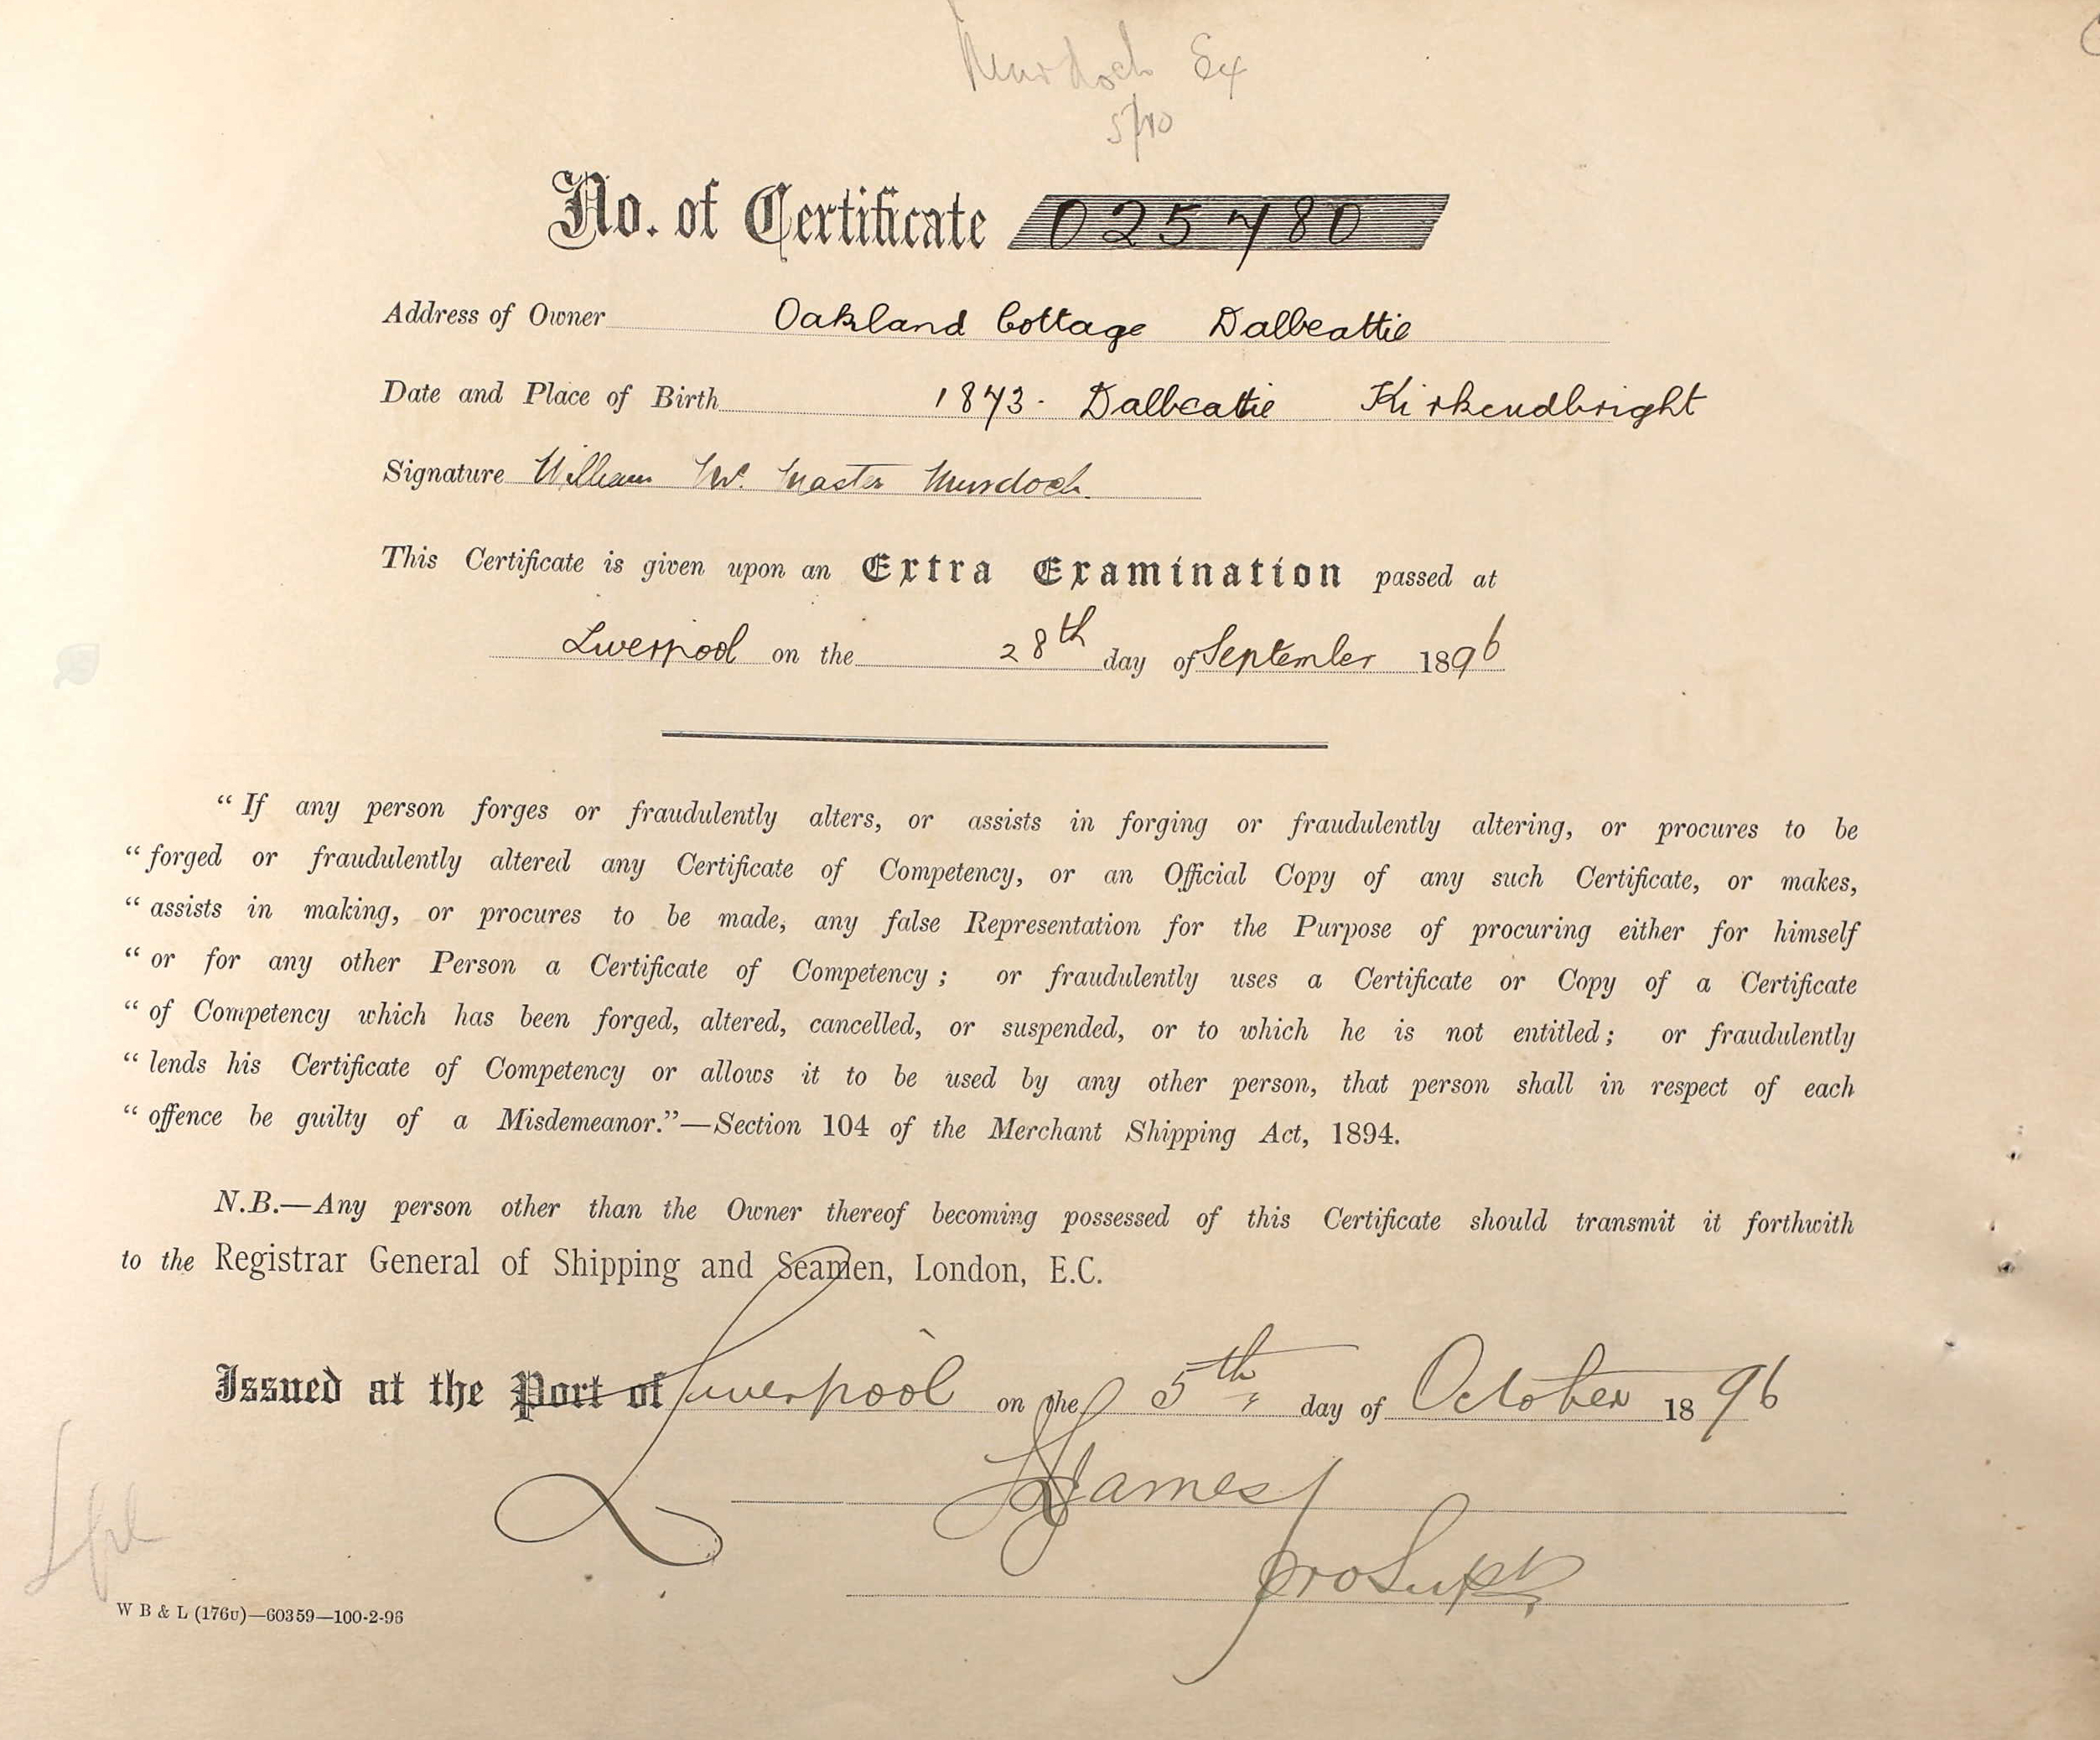 Murdoch Ex
5/10
No. of Certificate 025780
Address of Owner Oakland Cottage Dalbeattie
Date and Place of Birth 1873. Dalbeattie Kirkcudbright
Signature William Mc. Master Murdoch.
This Certificate is given upon an Extra Examination passed at
Liverpool on the 28th day of September 1896
“ If any person forges or fraudulently alters, or assists in forging or fraudulently altering, or procures to be
“ forged or fraudulently altered any Certificate of Competency, or an Official Copy of any such Certificate, or makes,
“ assists in making, or procures to be made, any false Representation for the Purpose of procuring either for himself
“ or for any other Person a Certificate of Competency ; or fraudulently uses a Certificate or Copy of a Certificate
“ of Competency which has been forged, altered, cancelled, or suspended, or to which he is not entitled ; or fraudulently
“ lends his Certificate of Competency or allows it to be used by any other person, that person shall in respect of each
“ offence be guilty of a Misdemeanor.”—Section 104 of the Merchant Shipping Act, 1894.
N.B.—Any person other than the Owner thereof becoming possessed of this Certificate should transmit it forthwith
to the Registrar General of Shipping and Seamen, London, E.C.
Issued at the Port of Liverpool on the 5th day of October 1896
James
pro Supt
Lpl
W B & L (176u)—60359—100-2-96